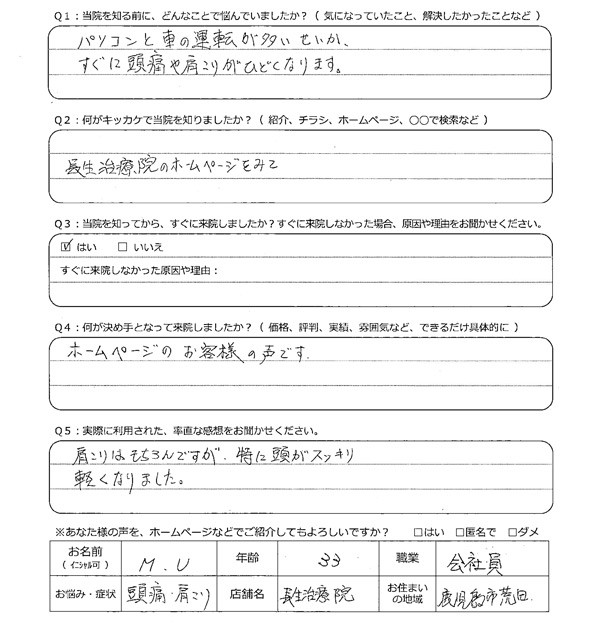 Q1：当院を知る前に、どんなことで悩んでいましたか？（ 気になっていたこと、解決したかったことなど ）
パソコンと車の運転が多いせいか、
すぐに頭痛や肩こりがひどくなります。
Q2：何がキッカケで当院を知りましたか？（ 紹介、チラシ、ホームページ、〇〇で検索など ）
長生治療院のホームページをみて
Q3：当院を知ってから、すぐに来院しましたか？すぐに来院しなかった場合、原因や理由をお聞かせください。
☑ はい　□ いいえ
すぐに来院しなかった原因や理由：
Q4：何が決め手となって来院しましたか？（ 価格、評判、実績、雰囲気など、できるだけ具体的に ）
ホームページの お客様の声です.
Q5：実際に利用された、率直な感想をお聞かせください。
肩こりはもちろんですが、特に頭がスッキリ
軽くなりました。
※あなた様の声を、ホームページなどでご紹介してもよろしいですか？　□はい　□匿名で　□ダメ
お名前（ｲﾆｼｬﾙ可） M.U 年齢 33 職業 会社員
お悩み・症状 頭痛・肩こり 店舗名 長生治療院 お住まいの地域 鹿児島市荒田